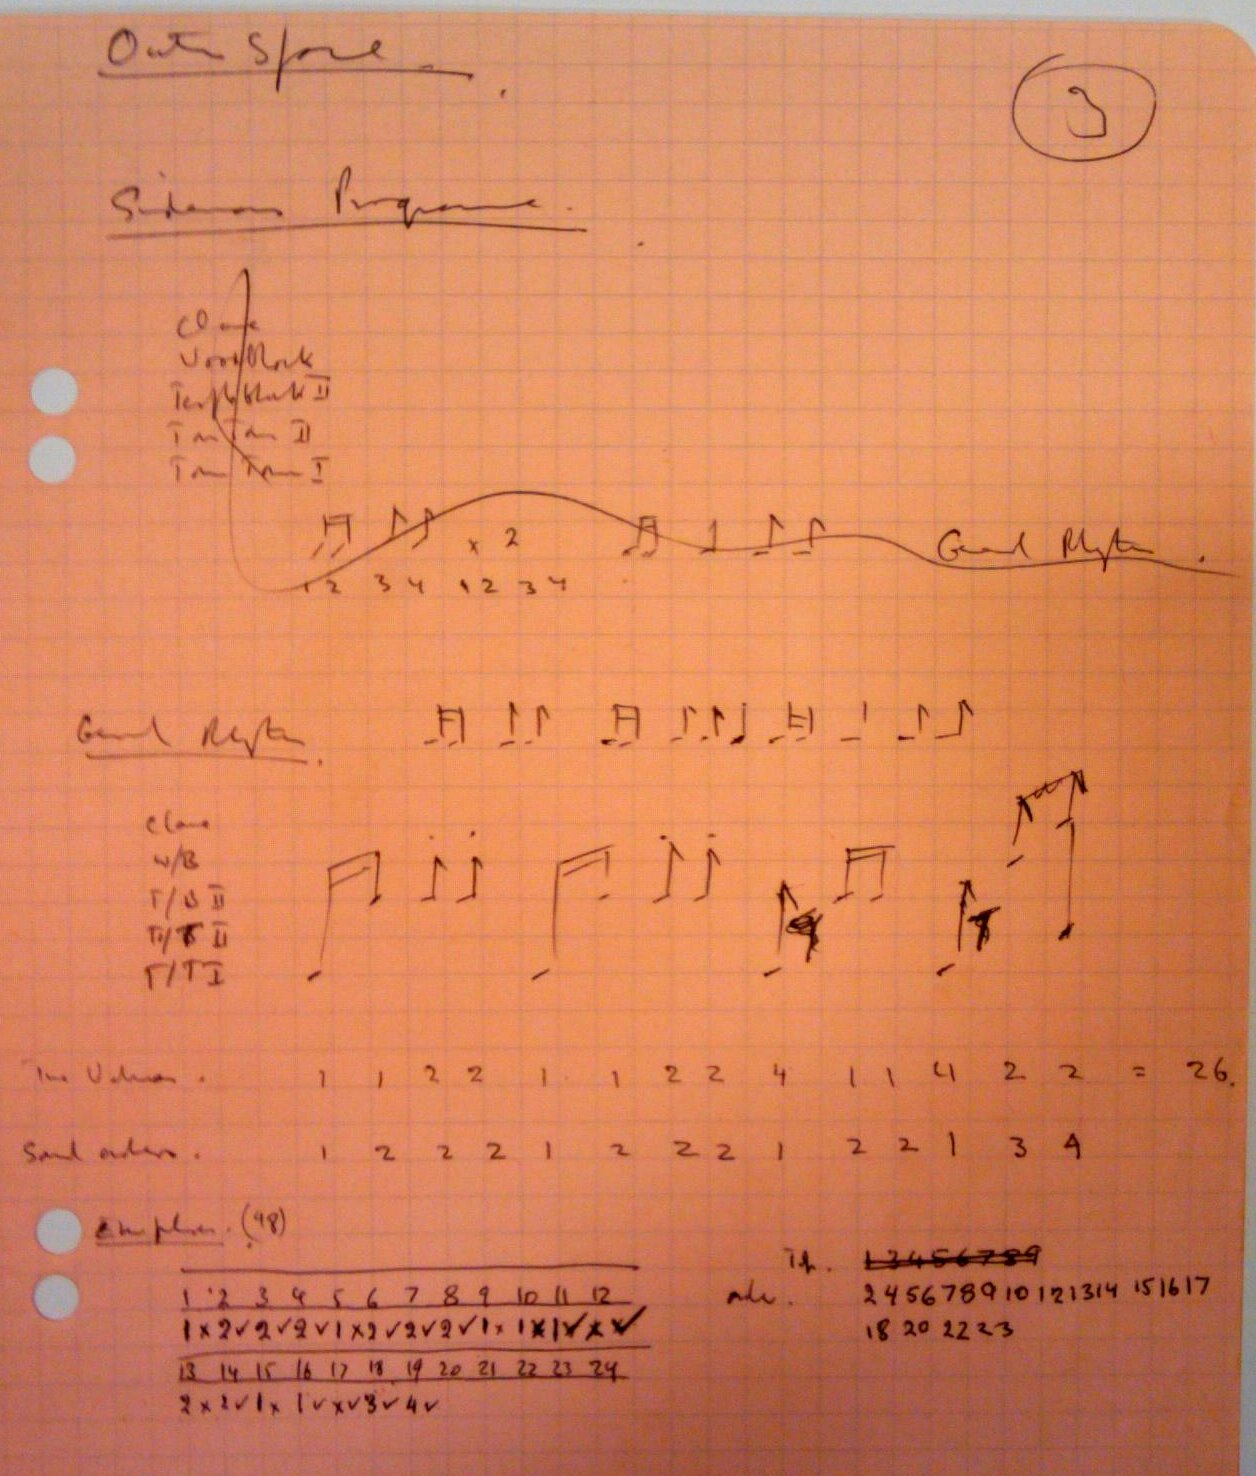 Outer Space.
3
Programme.
Clave
Woodblock
Temple block II
Tom Tom II
Tom Tom I
x 2
1 2 3 4 1 2 3 4
Rhythm.
Rhythm.
Clave
W/B
T/B II
T/T II
T/T I
Time Values. 1 1 2 2 1 1 2 2 4 1 1 4 2 2 = 26.
Sound orders. 1 2 2 2 1 2 2 2 1 2 2 1 3 4
(48)
1 2 3 4 5 6 7 8 9 10 11 12
13 14 15 16 17 18 19 20 21 22 23 24
2 x 2 ✓ 1 x 1 ✓ x ✓ 3 ✓ 4 ✓
2 4 5 6 7 8 9 10 12 13 14 15 16 17
18 20 22 23